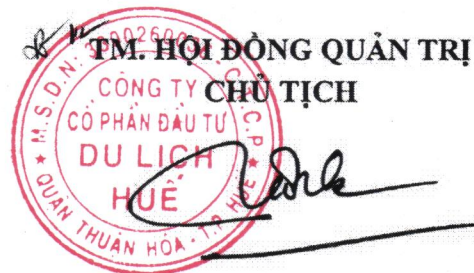 TM. HỘI ĐỒNG QUẢN TRỊ
CHỦ TỊCH
CÔNG TY
CỔ PHẦN ĐẦU TƯ
DU LỊCH
HUẾ
QUẬN THUẬN HÓA - T.P HUẾ